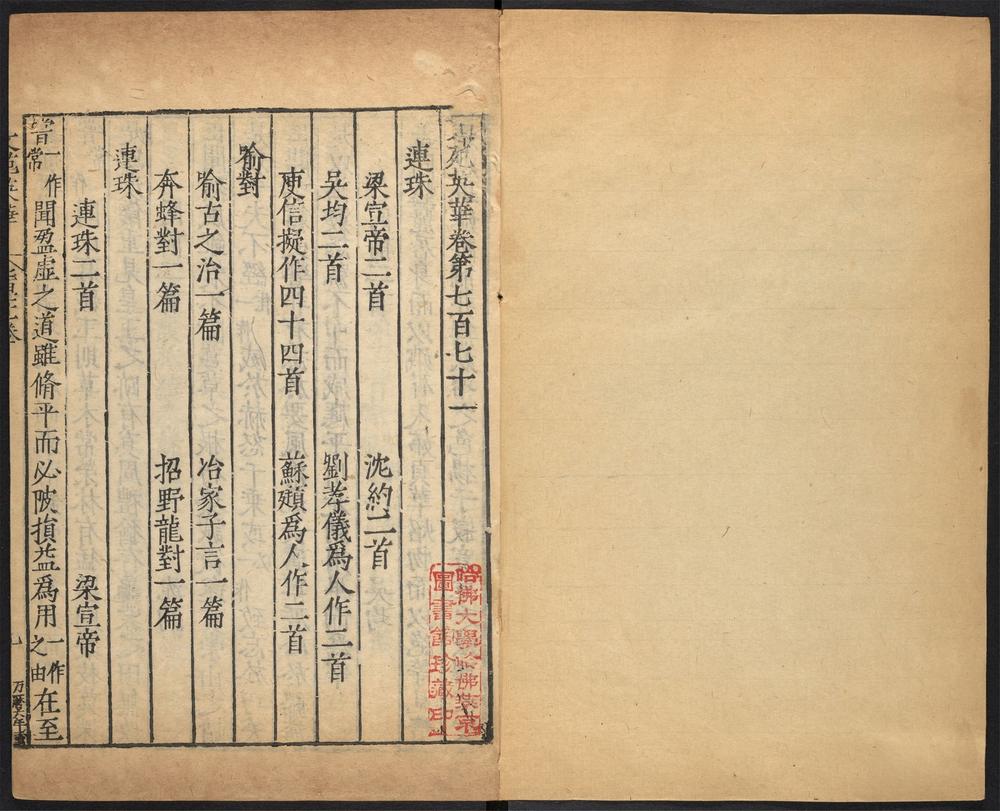 文苑英華卷第七百七十一
連珠
梁宣帝二首 沈約二首
吳均二首 劉孝儀爲人作二首
庾信擬作四十四首 蘇頲爲人作二首
喻對
喻古之治一篇 冶家子言一篇
奔蜂對一篇 招野龍對一篇
連珠
連珠二首 梁宣帝
嘗一作常聞盈虛之道雖脩平而必陂損益爲用一作之由在至
文苑英華
一
万曆六年
哈佛大學哈佛燕京
圖書館珍藏印